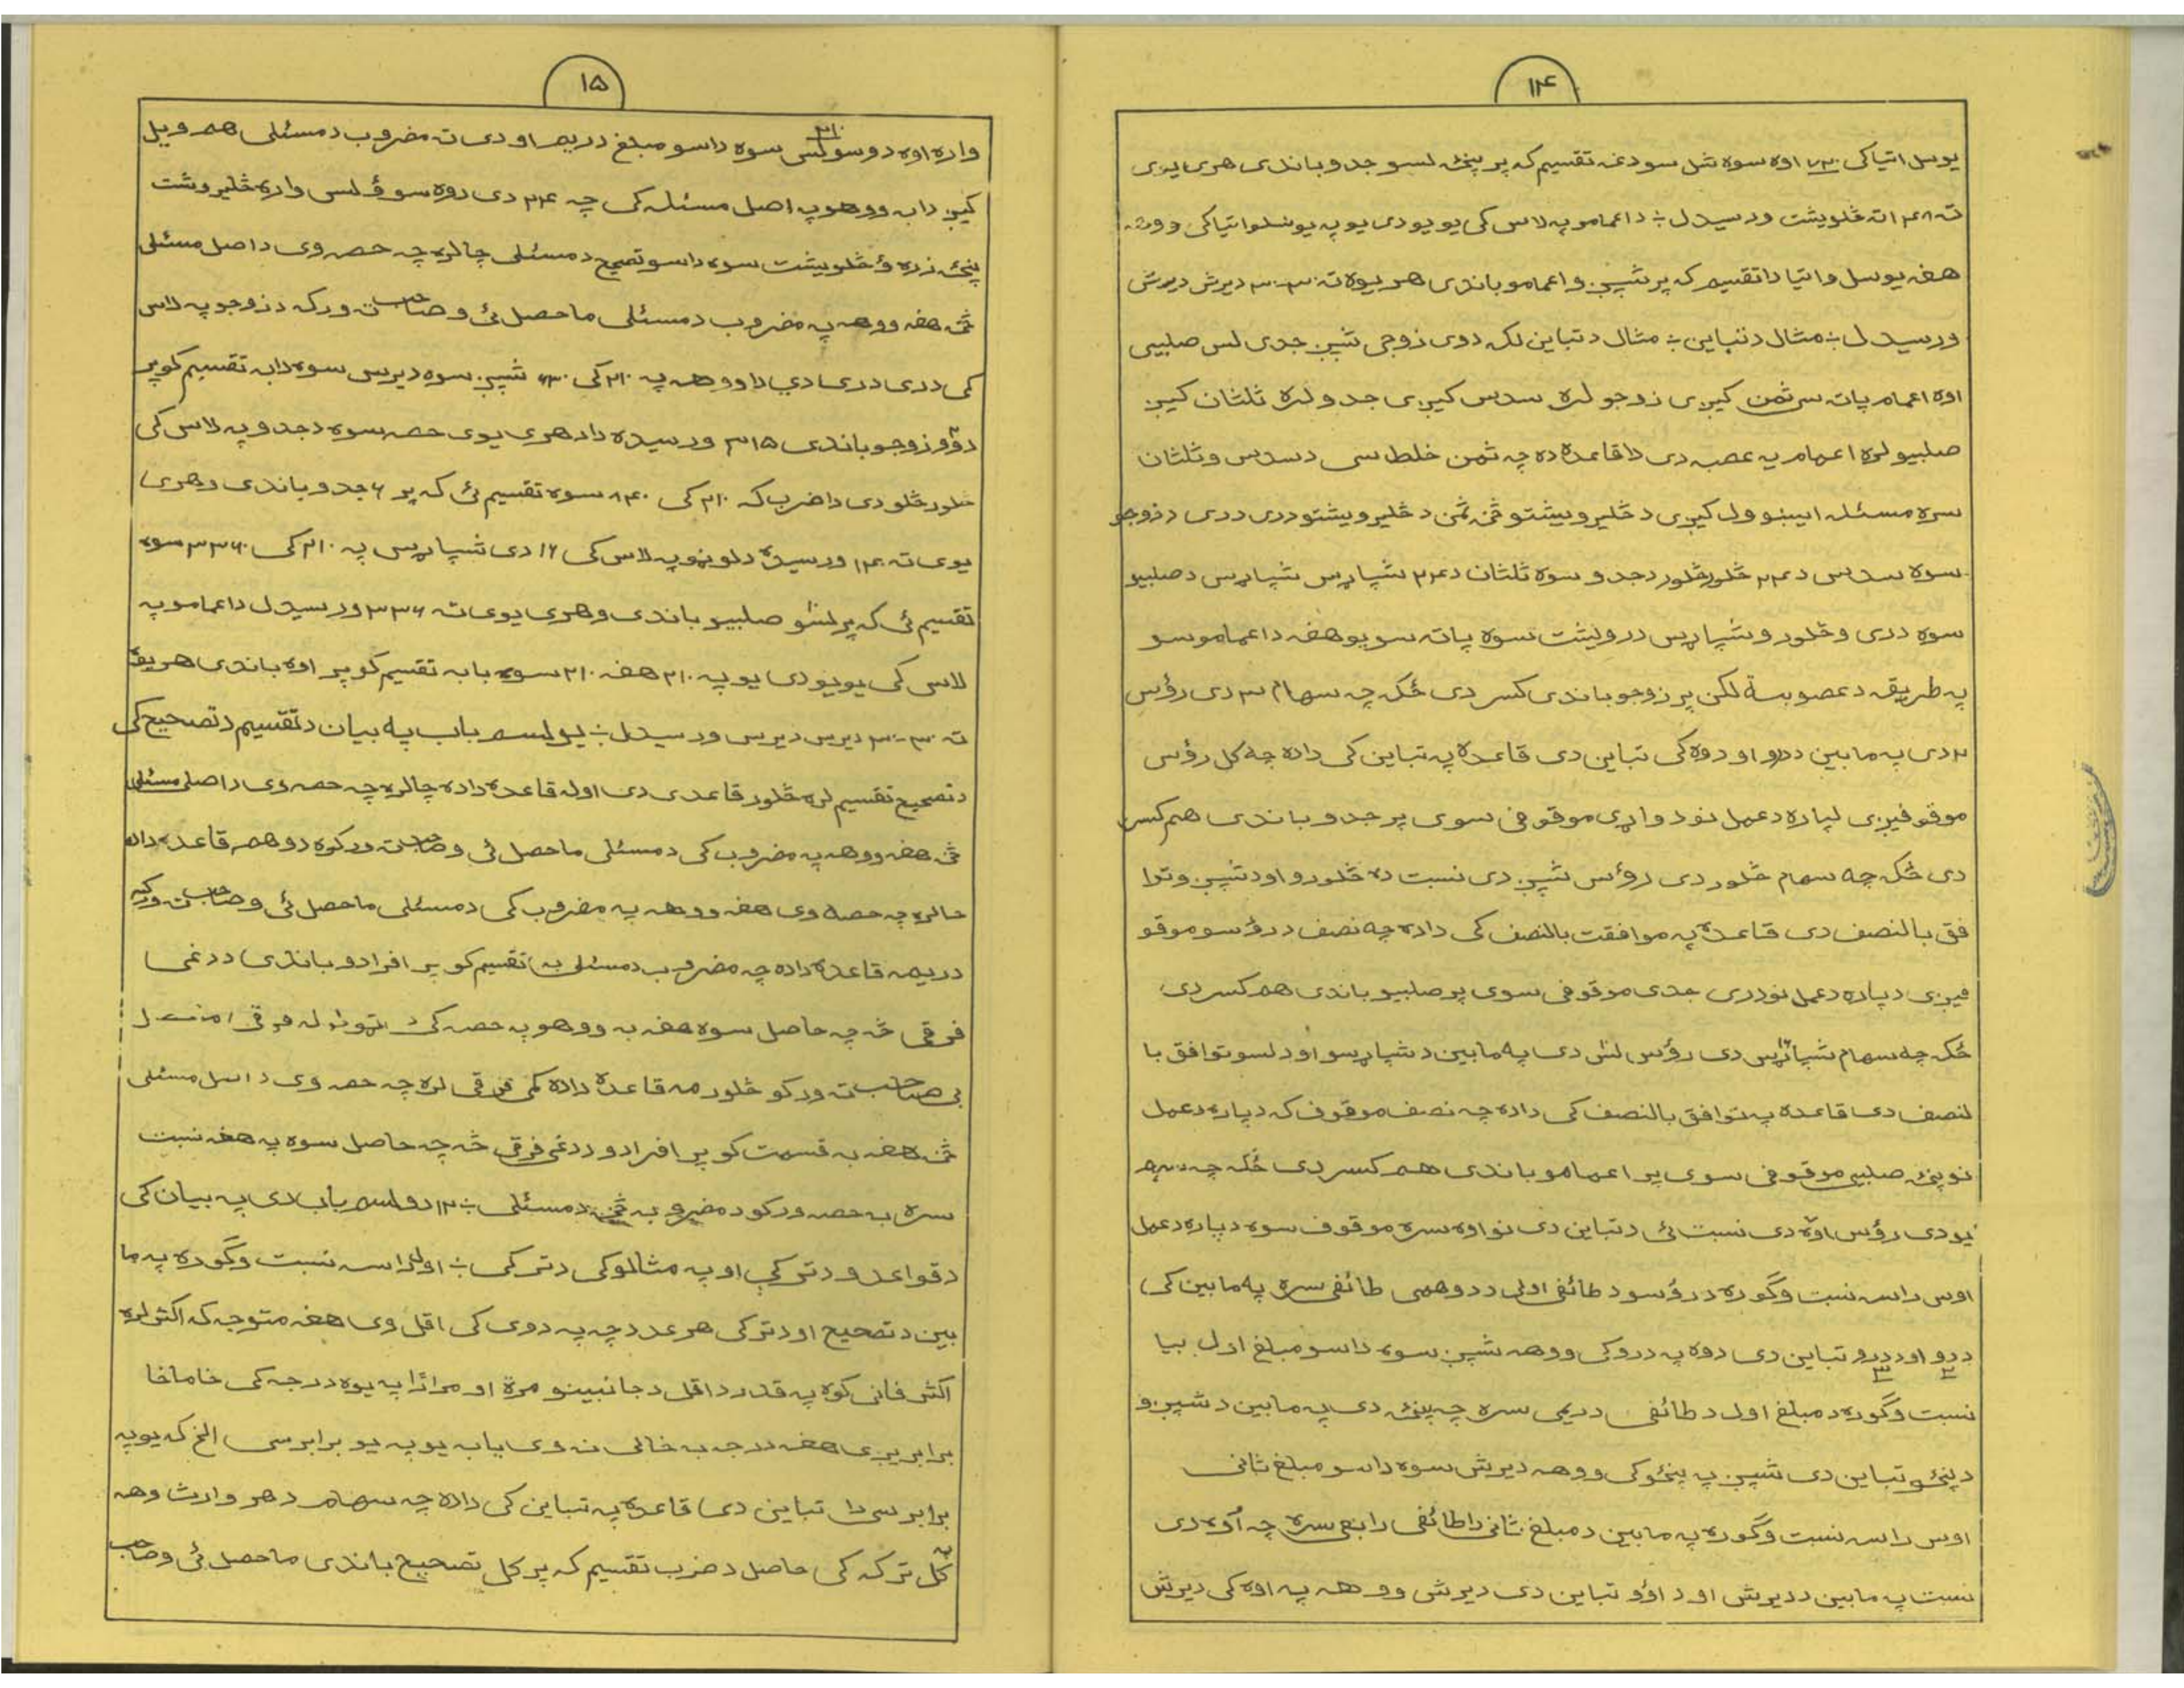 ۱۴
یوسل اتیا کی ۷۲۰ اوه سوه شل سو دغه تقسیم که پر پنځه لسو جدو باندی هری یوی
ته ۴۸ اته څلویښت ورسیدل ÷ داعمامو په لاس کی یو یو دی یو په یوسلو اتیا کی ووهه
هغه یوسل واتیا دا تقسیم که پر شپږو اعمامو باندی هر یوه ته ۳۰-۳۰ دیرش دیرش
ورسیدل ÷ مثال د تباین ÷ مثال د تباین لکه دوی زوجی شپږ جدی لس صلبیی
اوه اعمام پاته سی ثمن کیږی زوجو لره سدس کیږی جدو لره ثلثان کیږ
صلبیو لره اعمام یه عصبه دی دا قاعده ده چه ثمن خلط سی د سدس و ثلثان
سره مسئله ایښوول کیږی د څلیرویشتو څخه ثمن د څلیرویشتو دری دری د زوجو
سوه سدس د ۲۴ څلور څلور د جدو سوه ثلثان د ۲۴ شپاړس شپاړس د صلبیو
سوه دری و څلور و شپاړس درویشت سوه پاته سو یو هغه داعمامو سو
په طریقه د عصوبة لکن پر زوجو باندی کسر دی ځکه چه سهام ۳ دی رؤس
۲ دی په مابین د درو او دوه کی تباین دی قاعده په تباین کی داده چه کل رؤس
موقوفیږی لپاره دعمل نو دواړی موقوفی سوی پر جدو باندی هم کسر
دی ځکه چه سهام څلور دی رؤس شپږ دی نسبت ده څلورو او د شپږو توا
فق بالنصف دی قاعده په موافقت بالنصف کی داده چه نصف د رؤسو موقو
فیږی دپاره دعمل نو دری جدی موقوفی سوی پر صلبیو باندی هم کسر دی
ځکه چه سهام شپاړس دی رؤس لس دی په مابین د شپاړسو او د لسو توافق با
لنصف دی قاعده په توافق بالنصف کی داده چه نصف موقوف که دپاره دعمل
نو پنځه صلبیی موقوفی سوی پر اعمامو باندی هم کسر دی ځکه چه سهم
یو دی رؤس اوه دی نسبت ئی د تباین دی نو اوه سره موقوف سوه دپاره دعمل
اوس راسه نسبت وګوره د رؤسو د طائفی اولی د دوهمی طائفی سره په مابین کی
د دوو او د درو تباین دی دوه په درو کی ووهه شپږ سوه داسو مبلغ اول بیا
نسبت وګوره د مبلغ اول د طائفی دریمی سره چه پنځه دی په مابین د شپږو
د پنځو تباین دی شپږ په پنځو کی ووهه دیرش سوه داسو مبلغ ثانی
اوس راسه نسبت وګوره په مابین د مبلغ ثانی دا طائفی رابعی سره چه اوه دی
نسبت په مابین د دیرش او د اوو تباین دی دیرش ووهه په اوه کی دیرش
۱۵
واره اوه دوسوکس ۲۱۰ سوه داسو مبلغ دریم او دی ته مضروب د مسئلی هم ویل
کیږ دا به ووهو په اصل مسئله کی چه ۲۴ دی دوه سوؤ لس واره څلیرویشت
پنځه زره ؤ څلویښت سوه داسو تصحیح د مسئلی چالره چه حصه وی د اصل مسئلی
څخه هغه ووهه په مضروب د مسئلی ماحصل ئی و صاحب ته ورکه د زوجو په لاس
کی دری دری دی دا ووهه په ۲۱۰ کی ۶۳۰ شپږ سوه دیرس سوه دابه تقسیم کو پر
دوو زوجو باندی ۳۱۵ ورسیده دا د هری یوی حصه سوه د جدو په لاس کی
څلور څلور دی دا ضرب که ۲۱۰ کی ۸۴۰ سوه تقسیم ئی که پر ۶ جدو باندی وهری
یوی ته ۱۴۰ ورسیده د لوڼو په لاس کی ۱۶ دی شپاړس په ۲۱۰ کی ۳۳۶۰ سوه
تقسیم ئی که پر لسو صلبیو باندی وهری یوی ته ۳۳۶ ورسیدل داعمامو په
لاس کی یو یو دی یو په ۲۱۰ هغه ۲۱۰ سوه با به تقسیم کو پر اوه باندی هر یوه
ته ۳۰-۳۰ دیرس دیرس ورسیدل ÷ یولسم باب په بیان د تقسیم د تصحیح کی
د تصحیح تقسیم لره څلور قاعدی دی اوله قاعده داده چالره چه حصه وی د اصل مسئلی
څخه هغه ووهه په مضروب کی د مسئلی ماحصل ئی و صاحب ته ورکوه دوهم قاعده داده
چالره چه حصه وی هغه ووهه په مضروب کی د مسئلی ماحصل ئی و صاحب ته ورکه
دریمه قاعده داده چه مضروب د مسئلی به تقسیم کو پر افرادو باندی د دغی
فرقی څه چه حاصل سوه هغه به ووهو په حصه کی
بی صاحب ته ورکو څلورمه قاعده داده کمی فرقی لره چه حصه وی د اصل مسئلی
څخه هغه به قسمت کو پر افرادو د دغی فرقی څه چه حاصل سوه په هغه نسبت
سره به حصه ورکو د مضروبه څخه د مسئلی ÷ ۱۲ دولسم باب دی په بیان کی
د قواعدو د ترکی او په مثالوکی د ترکی ÷ اولا راسه نسبت وګوره په ما
بین د تصحیح او د ترکی هر عدد چه په دوی کی اقل وی هغه متوجه که اکثر لره
اکثر فانی کوه په قدر د اقل د جانبینو مرة او مرارا په یوه درجه کی خاماخا
برابریږی هغه درجه به خالی نه وی یا به یو په یو برابر سی الخ که یو په
برابر سی دا تباین دی قاعده په تباین کی داده چه سهام د هر وارث وهه
په کل ترکه کی حاصل د ضرب تقسیم که پر کل تصحیح باندی ماحصل ئی و صاحب